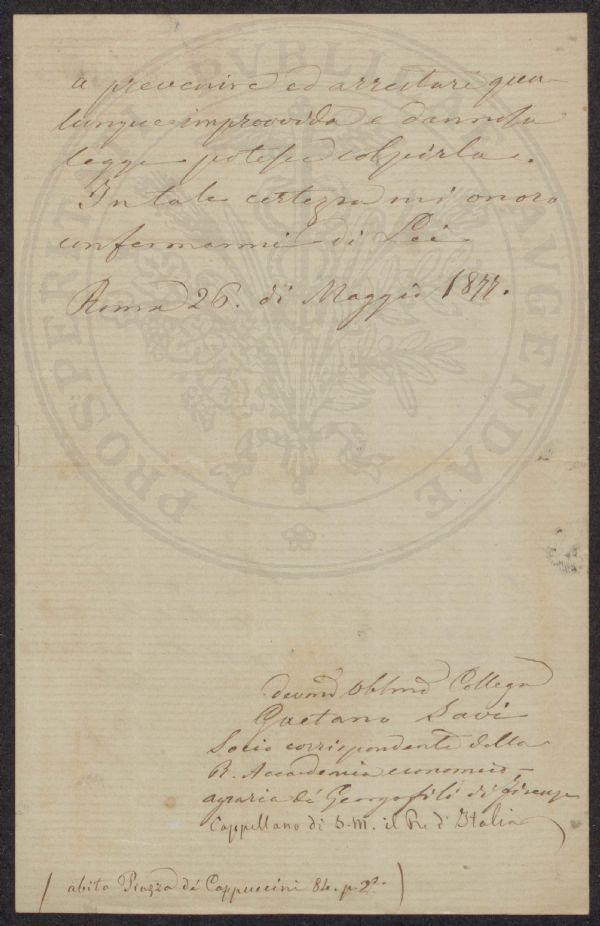 a prevenire ed arrestare qua-
lunque improvvida e dannosa
legge potesse colpirla.
In tale certezza mi onoro
confermarmi di Lei
Roma 26. di Maggio 1877.
devmo Obblmo Collega
Gaetano Savi
Socio corrispondente della
R. Accademia economico-
agraria de' Georgofili di firenze
Cappellano di S. M. il Re d'Italia
(abita Piazza de' Cappuccini 84. p. 2º.)
PROSPERITATI PVBLICAE AVGENDAE